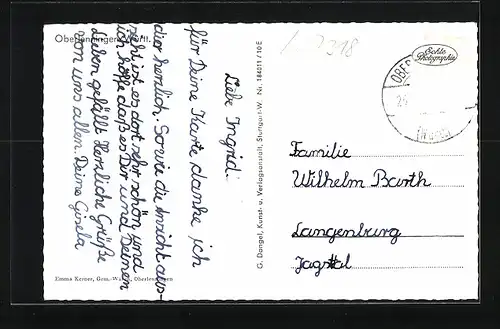 Oberlenningen Württ.
Liebe Ingrid!
für Deine Karte danke ich
dir herzlich. So wie die Ansicht aus-
sieht ist es dort sehr schön und
ich hoffe daß es Dir und Deinen
Lieben gefällt. Herzliche Grüße
von uns allen Deine Gisela
Emma Kerner, Gem.-Wa Oberlenningen
G. Dangel, Kunst- u. Verlagsanstalt, Stuttgart-W. Nr. 184011/10 E
2318
Echte
Photographie
Familie
Wilhelm Barth
Langenburg
Jagsttal